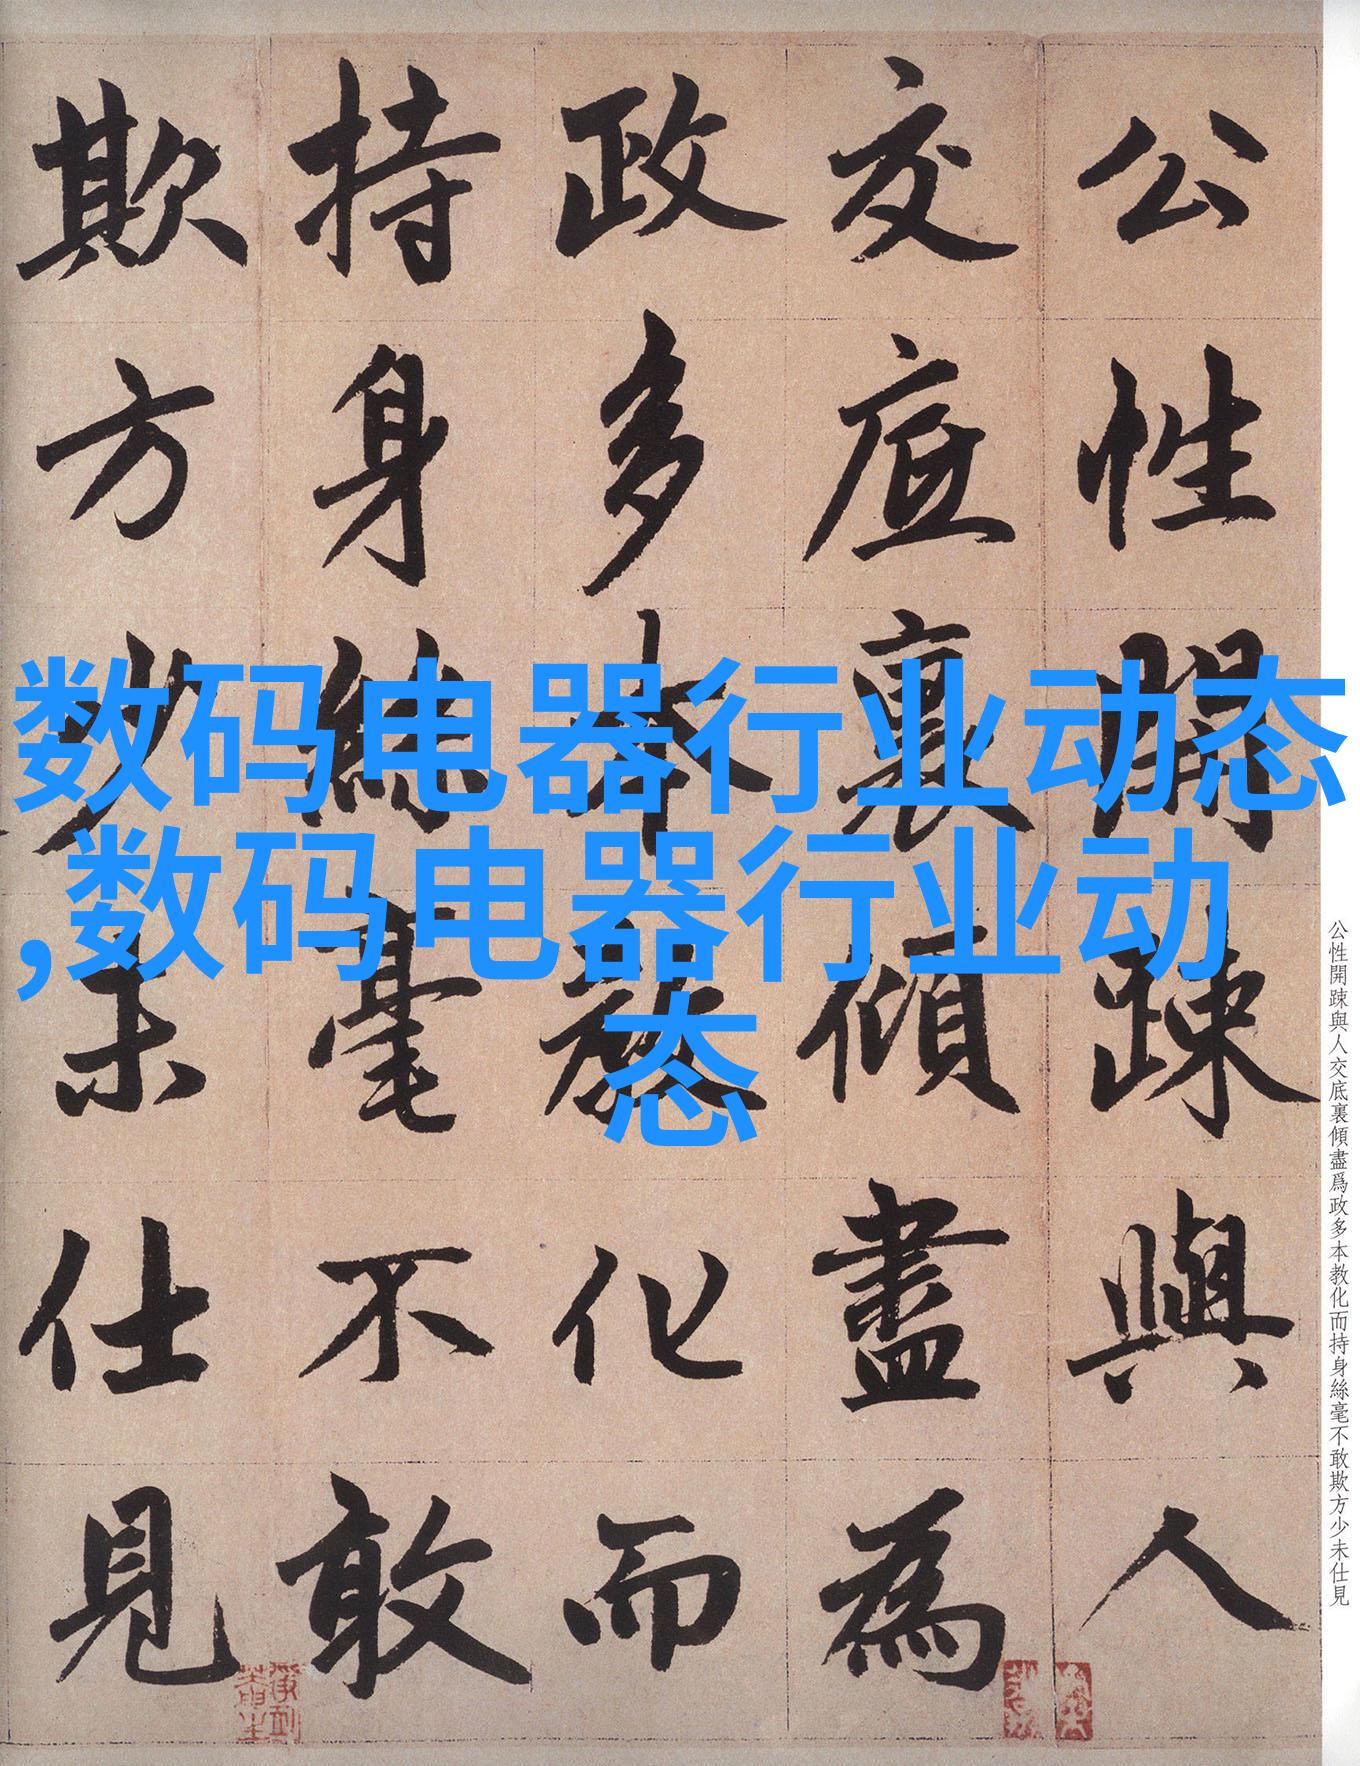 公性開踈與人
交底裏傾盡為
政多本教化而
持身絲毫不敢
欺方少未仕見
数码电器行业动态
,数码电器行业动
态
公性開踈與人交底裏傾盡爲政多本教化而持身絲毫不敢欺方少未仕見